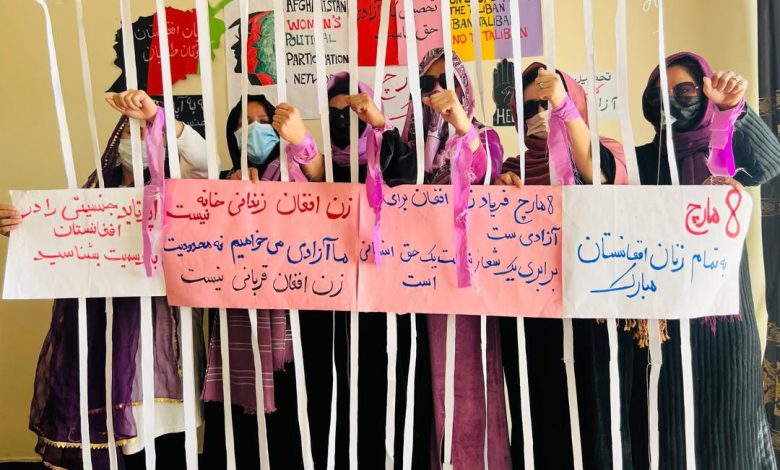 AFGHANISTAN
WOMEN'S
POLITICAL
PARTICIPATION
NETWORK
TALIBAN
NO TO TALIBAN
آپارتاید جنسیتی را در
افغانستان
به رسمیت بشناسید
زن افغان زندانی خانه
نیست
ما آزادی می‌خواهیم نه محدودیت
زن افغان قربانی نیست
۸ مارچ فریاد زن افغان برای
آزادی ست
برابری یک شعار نیست یک حق انسانی
است
۸ مارچ
به تمام زنان افغانستان
مبارک